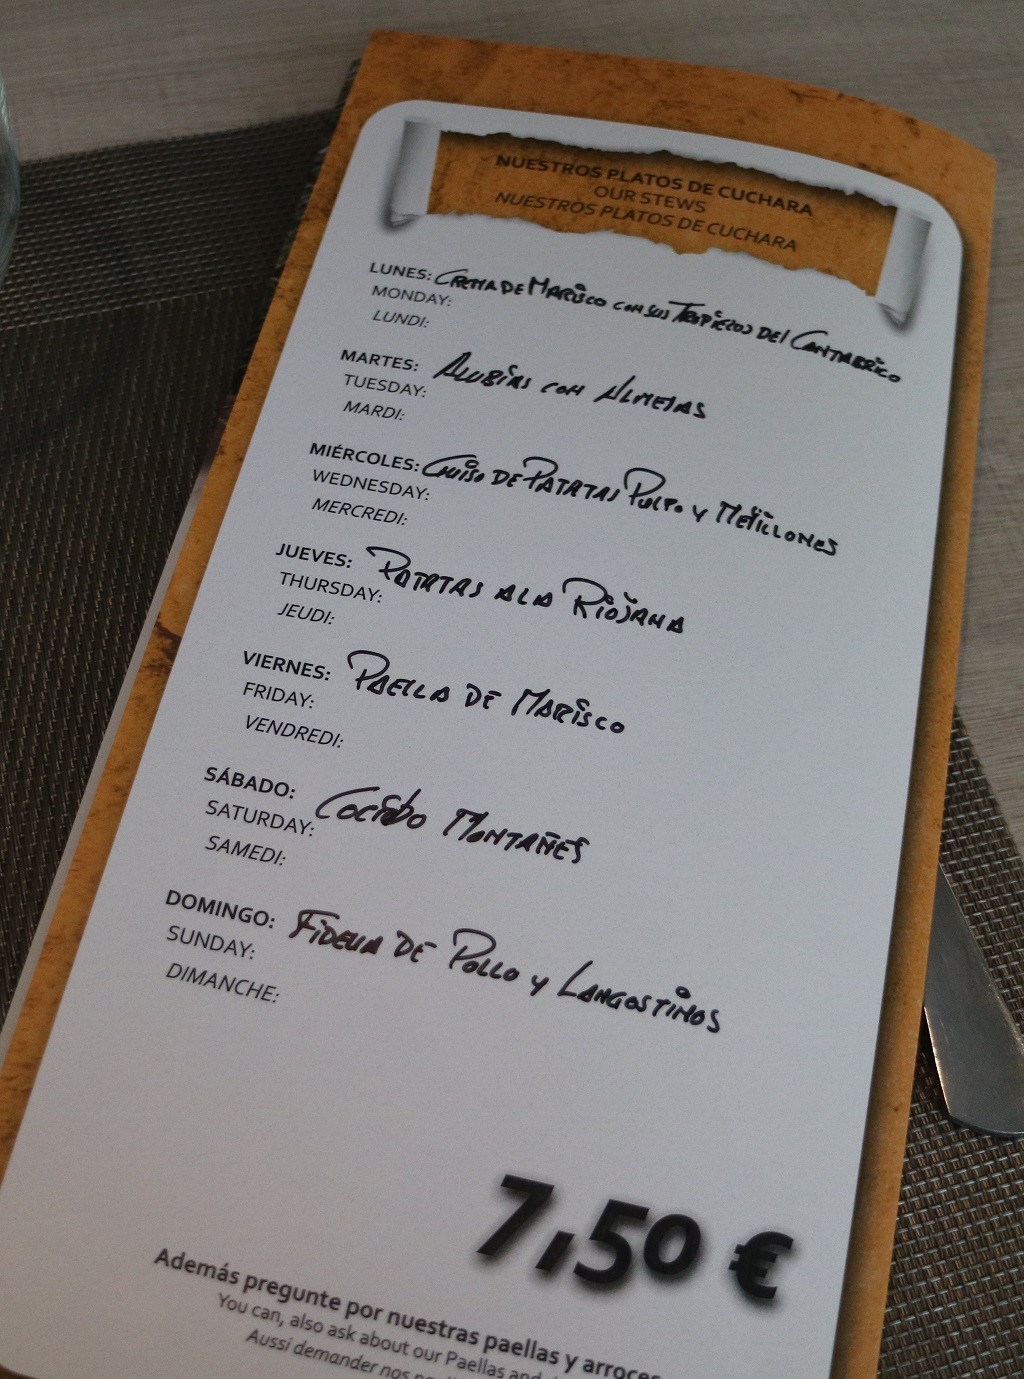 NUESTROS PLATOS DE CUCHARA
OUR STEWS
NUESTROS PLATOS DE CUCHARA
LUNES: CREMA DE MARISCO CON SUS TROPIEZOS DEL CANTABRICO
MONDAY:
LUNDI:
MARTES: ALUBIAS CON ALMEJAS
TUESDAY:
MARDI:
MIÉRCOLES: GUISO DE PATATAS PULPO Y MEJILLONES
WEDNESDAY:
MERCREDI:
JUEVES: PATATAS A LA RIOJANA
THURSDAY:
JEUDI:
VIERNES: PAELLA DE MARISCO
FRIDAY:
VENDREDI:
SÁBADO: COCIDO MONTAÑES
SATURDAY:
SAMEDI:
DOMINGO: FIDEUA DE POLLO Y LANGOSTINOS
SUNDAY:
DIMANCHE:
7,50 €
Además pregunte por nuestras paellas y arroces
You can, also ask about our Paellas and
Aussi demander nos